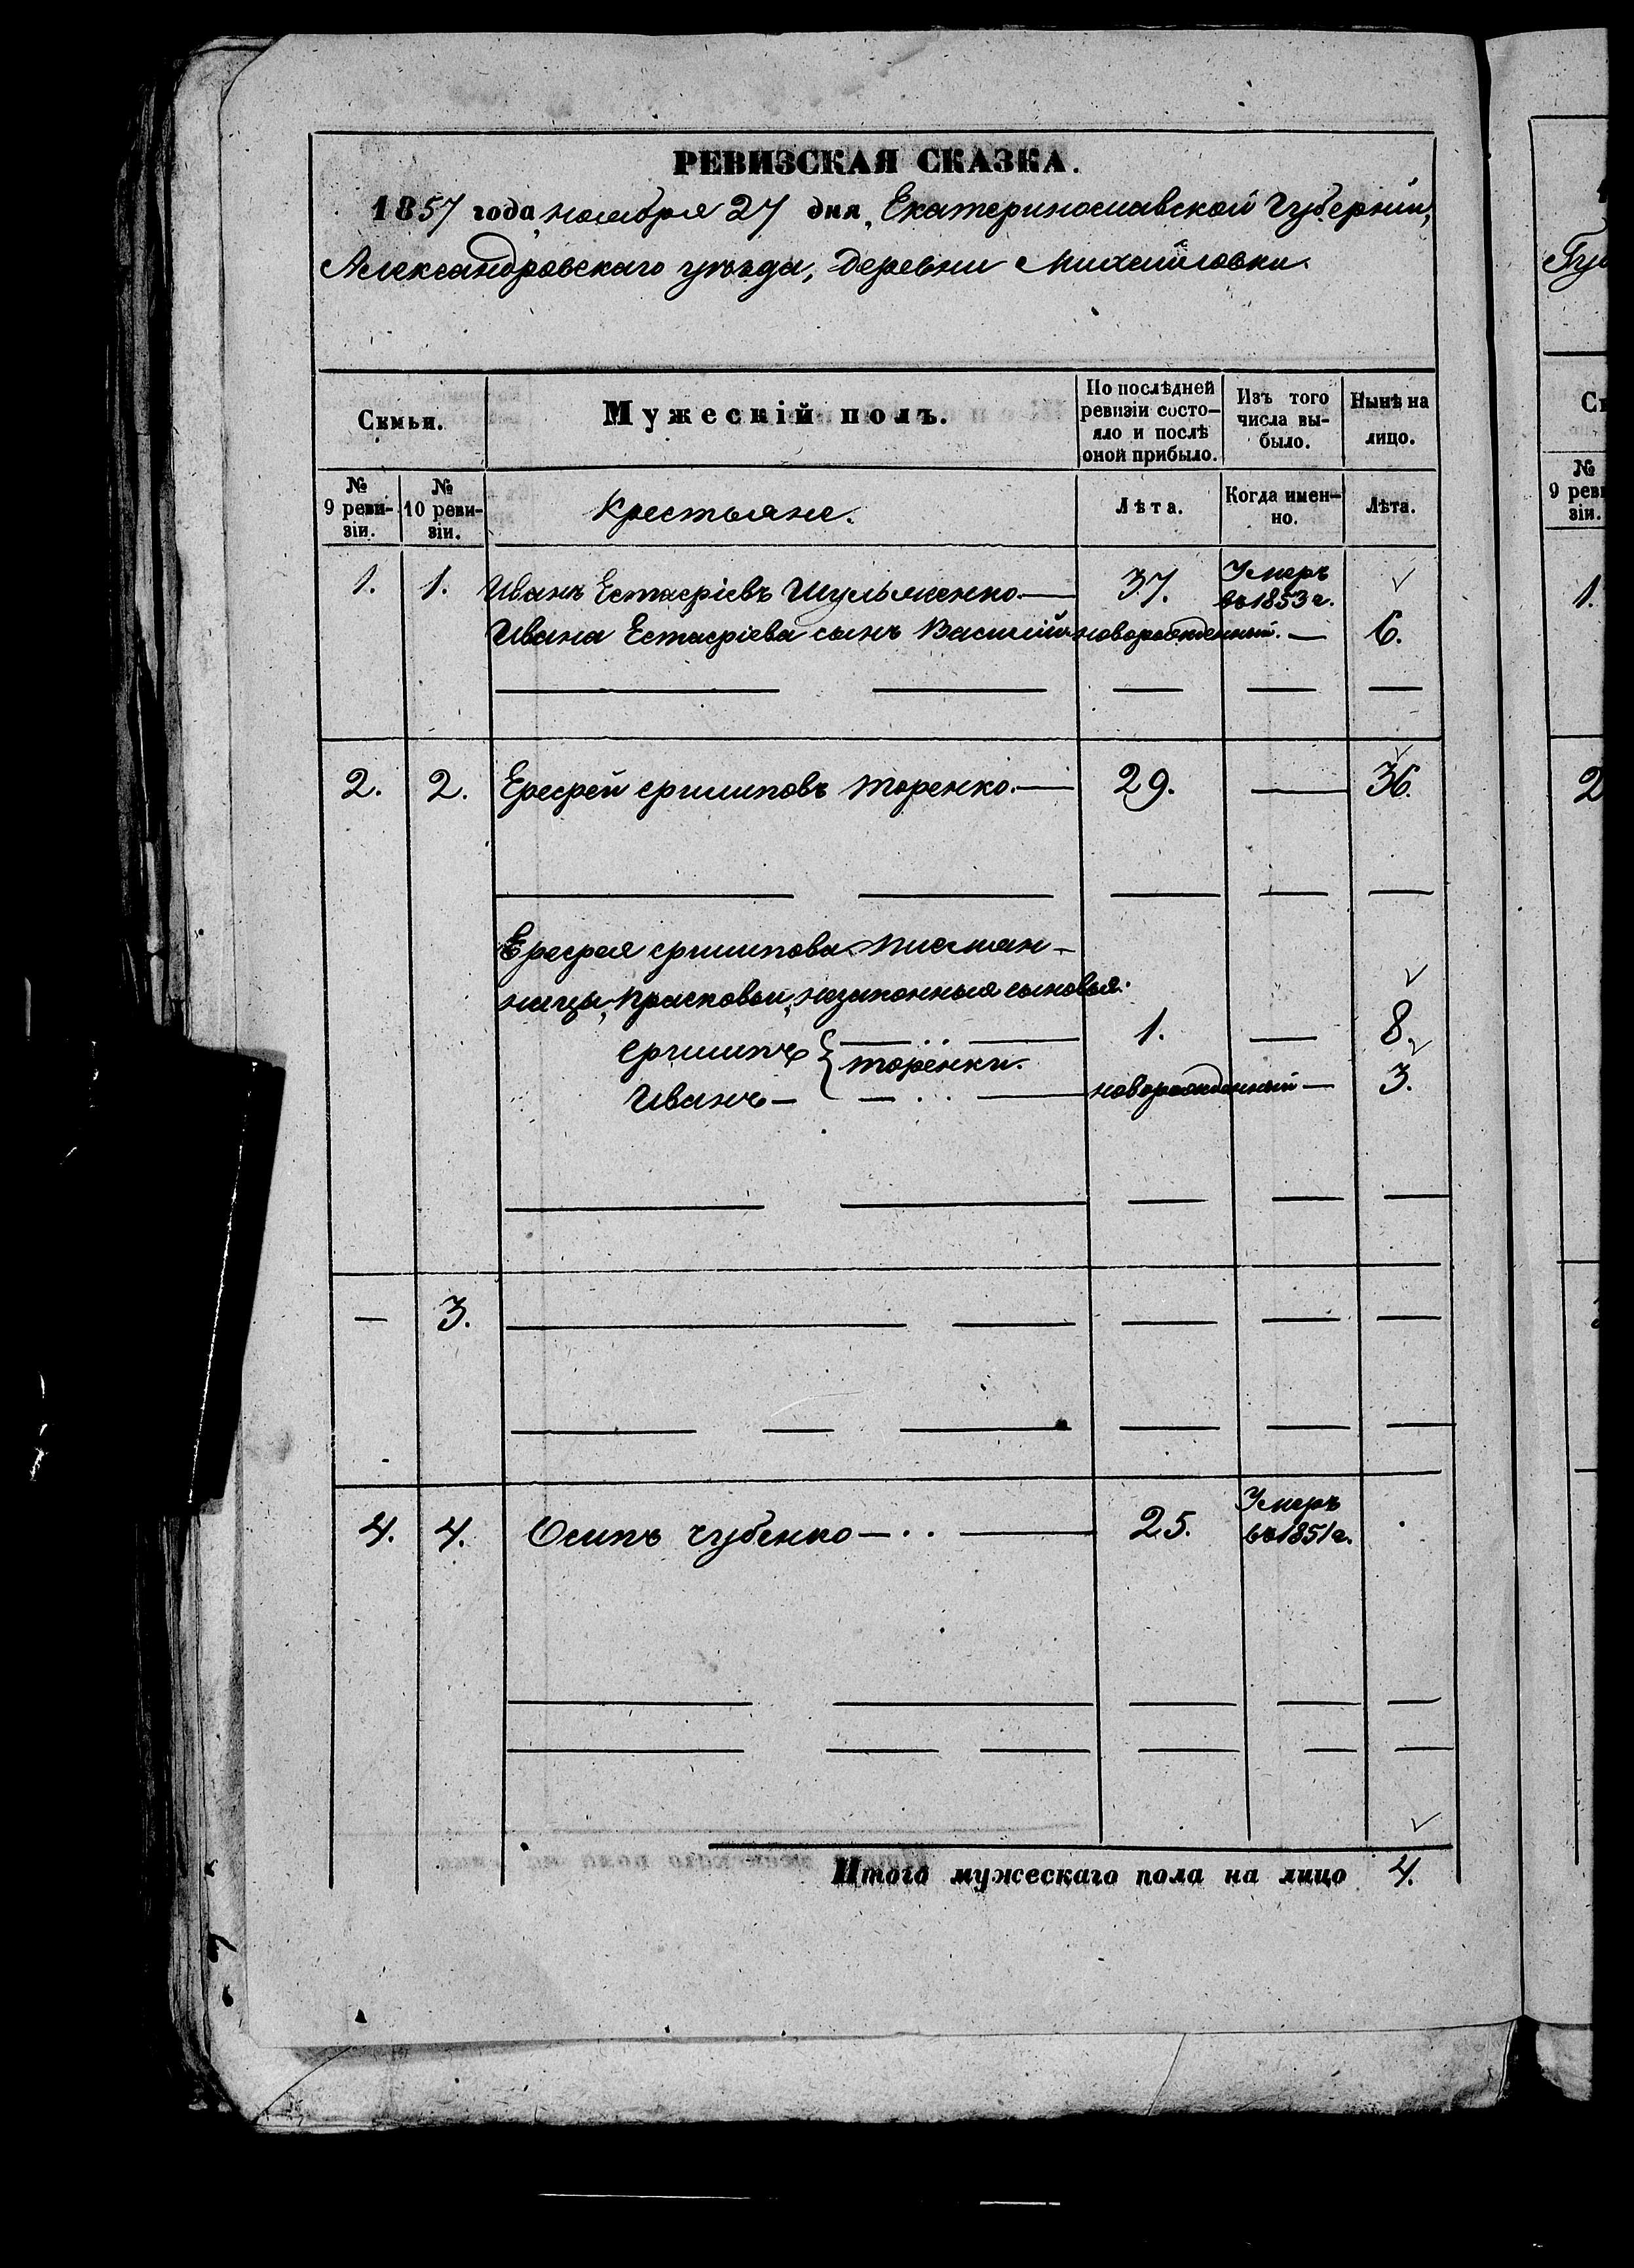 РЕВИЗСКАЯ СКАЗКА.
1857 года, ноября 27 дня, Екатеринославской Губерніи,
Александровскаго уѣзда, деревни Михайловки.
Семьи.
Мужескій полъ.
По послѣдней
ревизіи состо-
яло и послѣ
оной прибыло.
Изъ того
числа вы-
было.
Нынѣ на
лицо.
№
9 реви-
зіи.
№
10 реви-
зіи.
Крестьяне.
Лѣта.
Когда имен-
но.
Лѣта.
1. 1. Иванъ Естафіевъ Шульженко. 37. Умеръ
въ 1853 г.
Ивана Естафіева сынъ Василій новорожденный. 6.
2. 2. Ефрей филиповъ Торенко. 29. 36.
Ефрея филипова
Прасковьи, незаконныя сыновья:
филипъ 1. 8.
Торенки.
Иванъ новорожденный 3.
3.
4. 4. Осипъ чубенко 25. Умеръ
въ 1851 г.
Итого мужескаго пола на лицо 4.
Гу
№
9 реви
зіи.
1.
2